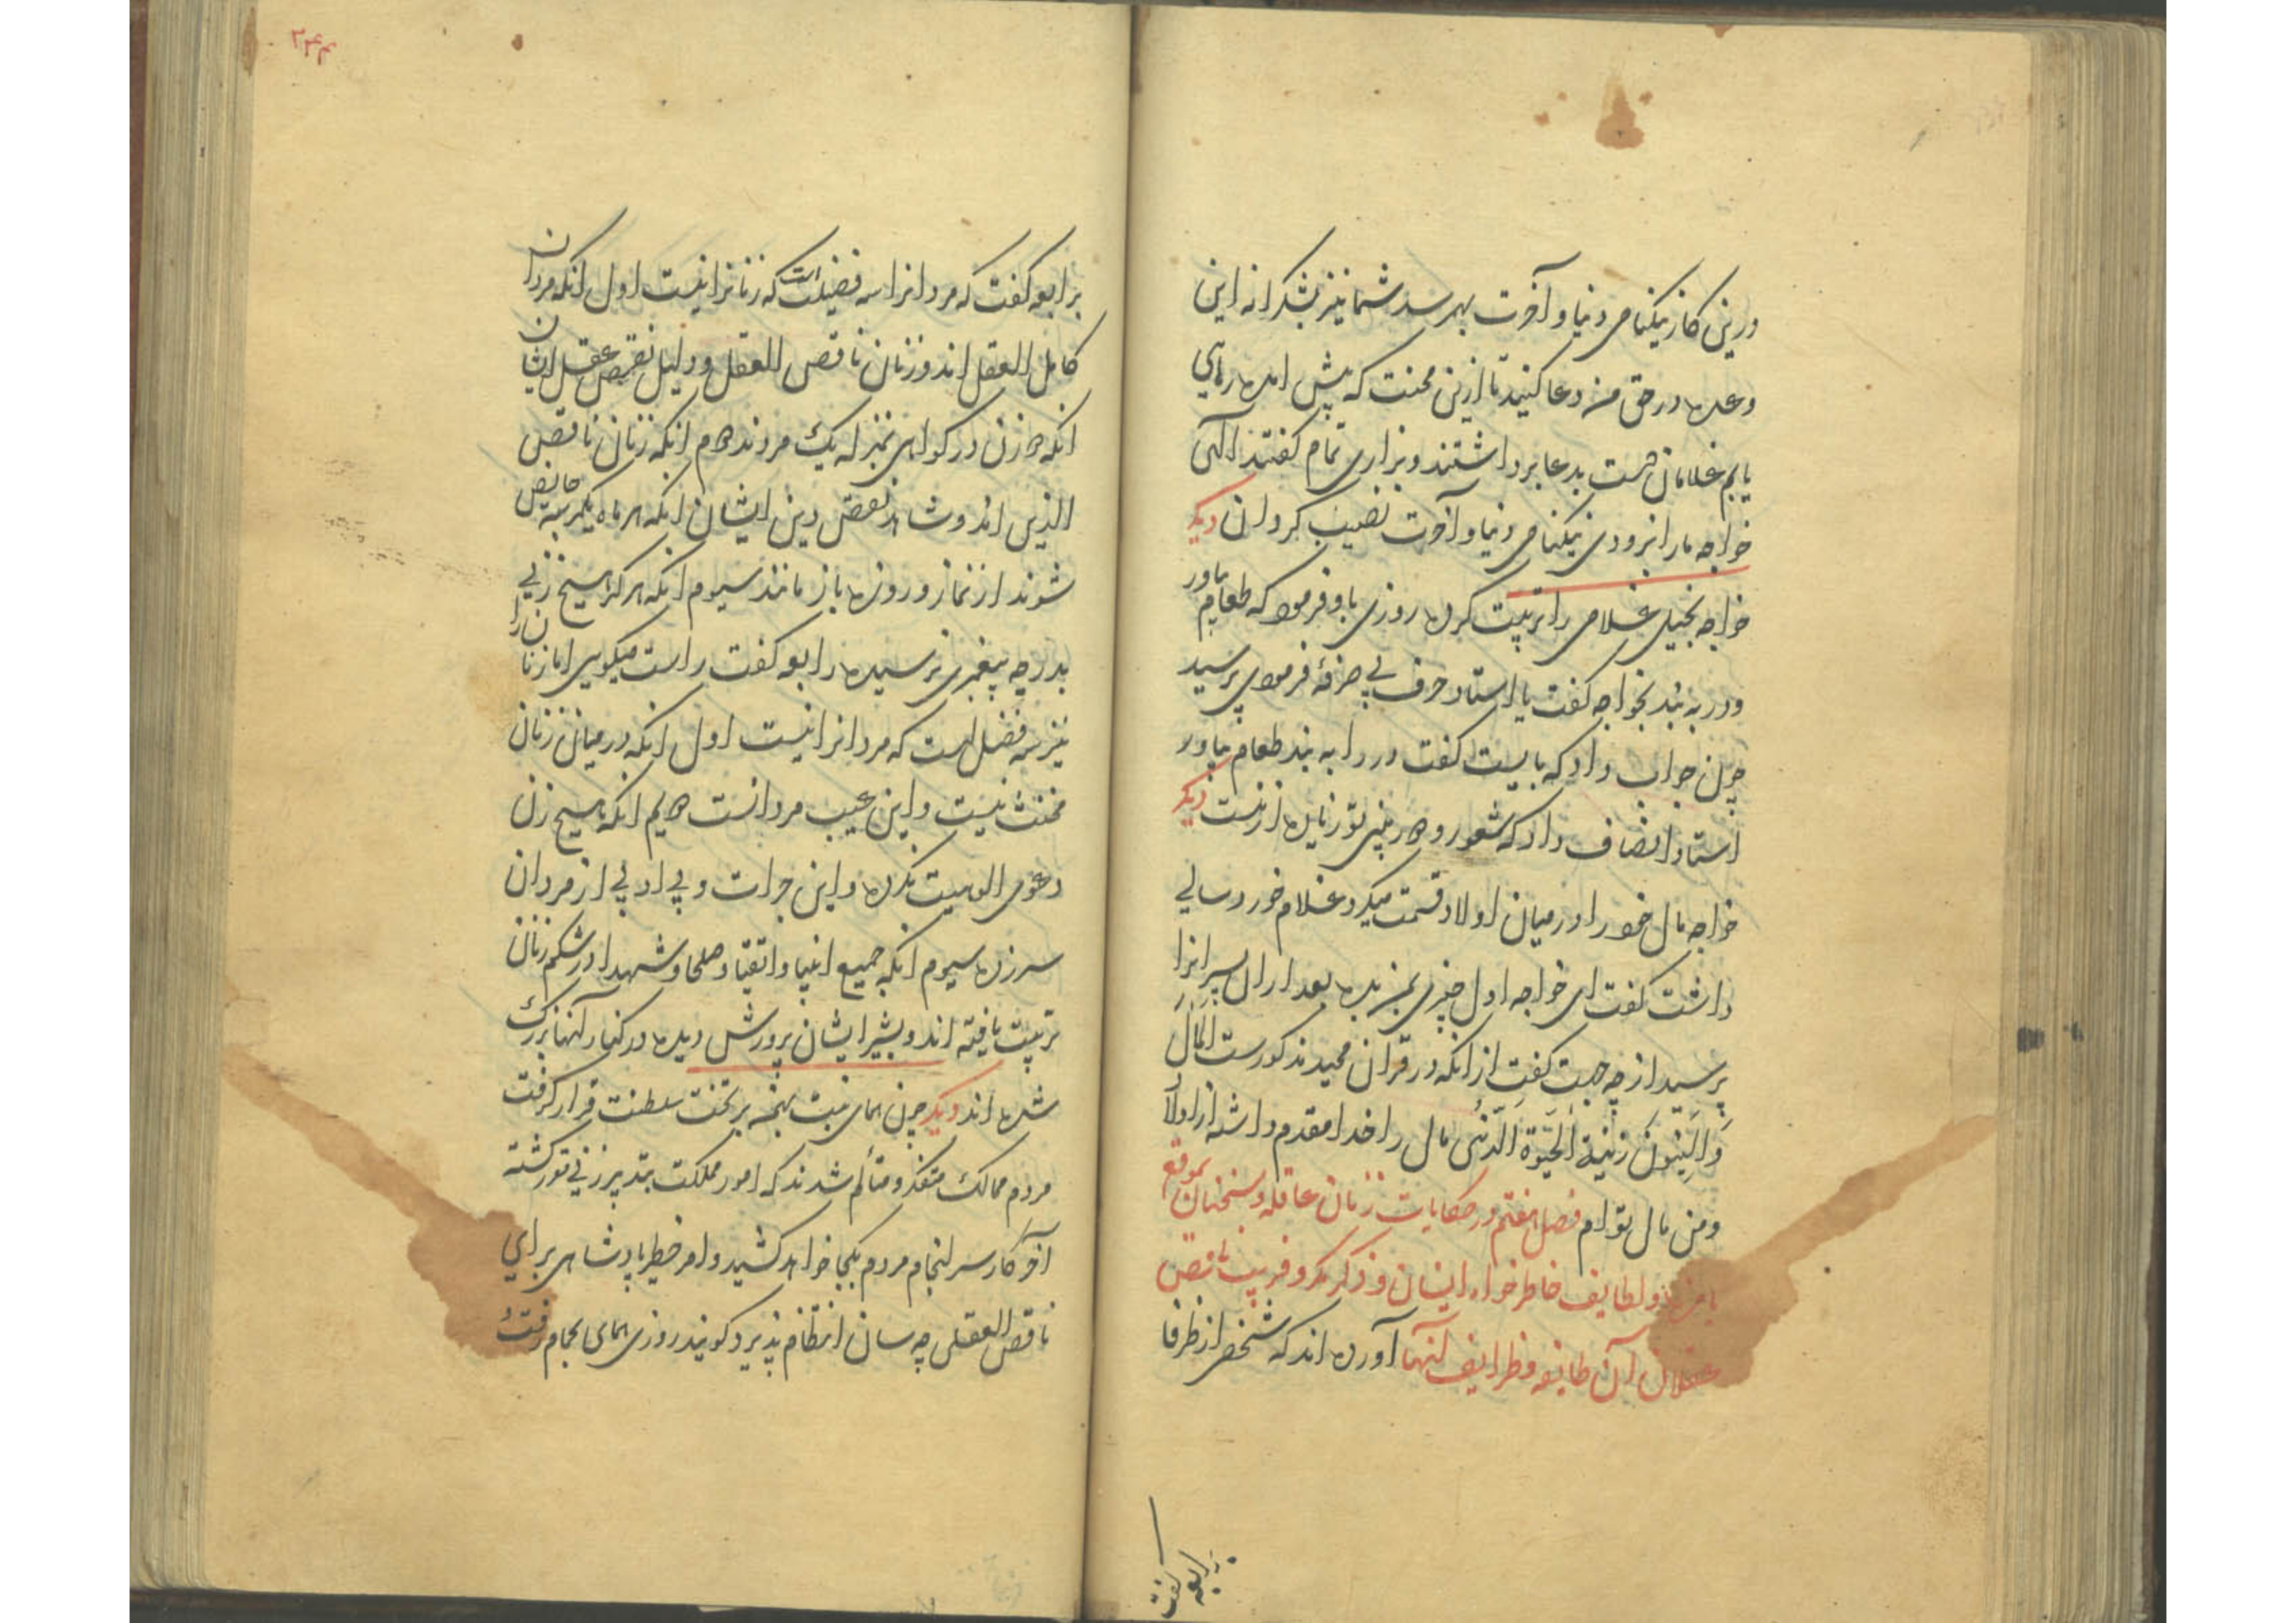 درین کار نیکنامی دنیا و آخرت بهم رسد شما نیز بشکرانه این
وعده در حق من دعا کنید تا ازین محنت که پیش آمده رهایی
یابم غلامان دست بدعا برداشتند و بزاری تمام گفتند الهی
خواجه ما را بزودی نیکنامی دنیا و آخرت نصیب کردان دیگر
خواجه بخیل غلامی را تربیت کرده روزی باو فرمود که طعام بیاور
و در به بند بخواجه گفت یا استاد حرف بی صرفهٔ فرمودی پرسید
چون جواب داد که بایست گفت در را به بند طعام بیاور
استاد انصاف داد که شعور و دوربینی تو زیاده از منست دیگر
خواجه مال خود را در میان اولاد قسمت میکرد غلام خورد سالی
داشت گفت ای خواجه اول چیزی بمن بده بعد از آن پسرانرا
پرسید از چه جهت گفت از آنکه در قرآن مجید مذکورست اَلمَالُ
وَالبَنُونَ زِینَةُ الحَیٰوةِ الدُّنیَا مال را خدا مقدم داشته از اولاد
و من مال توام فصل هفتم در حکایات زنان عاقله و سخنان بموقع
بامزه و لطایف خاطرخواه ایشان و ذکر مکر و فریب ناقص
عقلان آن طایفه و ظرایف آنها آورده اند که شخصی از ظرفا
برابعه گفت
۲۴۴
برابعه گفت که مردانرا سه فضیلت است که زنانرا نیست اول آنکه مردان
کامل العقل اند و زنان ناقص العقل و دلیل نقص عقل ایشان
آنکه دو زن در گواهی بمنزله یک مردند دوم آنکه زنان ناقص
الدین اند و شاهد نقص دین ایشان آنکه هر ماه یکمرتبه حائض
شوند از نماز و روزه باز مانند سیوم آنکه هرگز هیچ زنی
بدرجه پیغمبری نرسیده رابعه گفت راست میگویی اما زنان را
نیز سه فضل است که مردانرا نیست اول آنکه در میان زنان
مخنث نیست و این عیب مردانست دویم آنکه هیچ زن
دعوی الوهیت نکرده و این جرات و بی ادبی از مردان
سر زده سیوم آنکه جمیع انبیا و اتقیا و صلحا و شهدا در شکم زنان
تربیت یافته اند و بشیر ایشان پرورش دیده در کنار آنها بزرگ
شده اند دیگر چون همای بنت بهمن بر تخت سلطنت قرار گرفت
مردم ممالک متفکر و متألم شدند که امور مملکت بتدبیر زنی گشته
آخر کار سرانجام مردم بکجا خواهد کشید و امر خطیر پادشاهی برای
ناقص العقلی چه سان انتظام پذیرد گویند روزی همای بحمام رفت